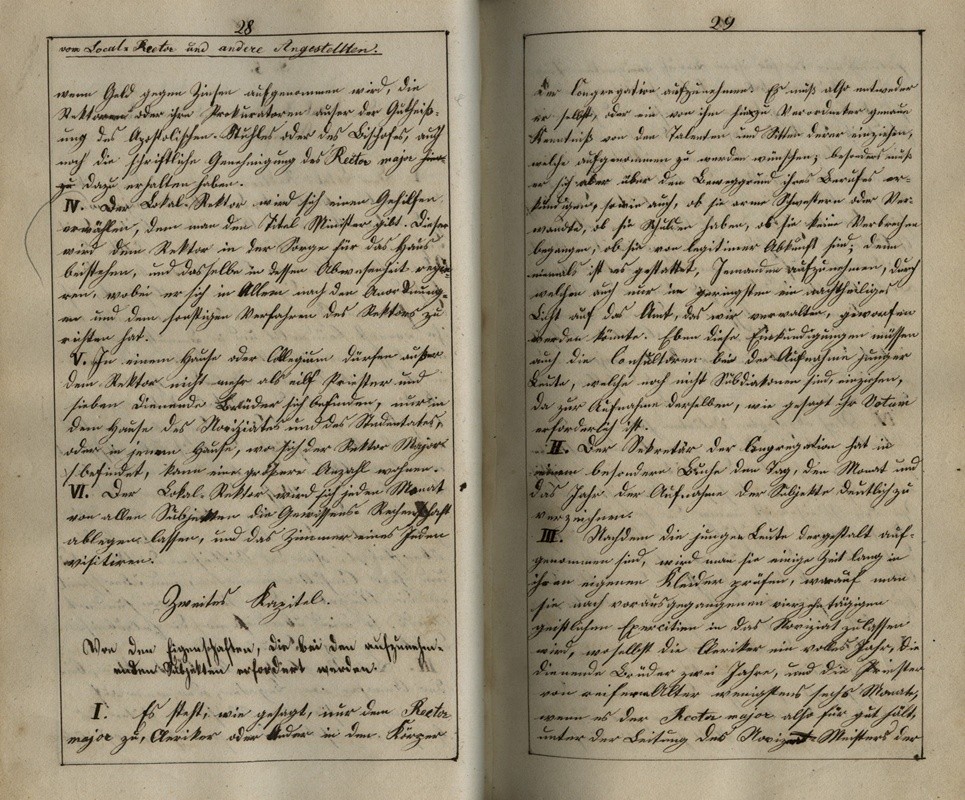 28
vom Local-Rector und andere Angestellten.
wenn Geld gegen Zinsen aufgenommen wird, die
Rektoren oder ihre Prokuratoren außer der Gutheiß-
ung des Apostolischen-Stuhles oder des Bischofes, auch
noch die schriftliche Genehmigung des Rector major
zu dazu erhalten haben.
IV. Der Lokal-Rektor wird sich einen Gehilfen
erwählen, dem man den Titel Minister gibt. Dieser
wird dem Rektor in der Sorge für das Haus
beistehen, und dasselbe in dessen Abwesenheit regie-
ren, wobei er sich in Allem nach den Anordnung-
en und dem sonstigen Verfahren des Rektors zu
richten hat.
V. In einem Hause oder Collegium dürfen außer
dem Rektor nicht mehr als eilf Priester und
sieben dienende Brüder sich befinden, nur in
dem Hause des Noviziates und des Studentates,
oder in jenem Hause, wo sich der Rektor Major
befindet, kann eine größere Anzahl wohnen.
VI. Der Lokal-Rektor wird sich jeden Monat
von allen Subjekten die Gewissens-Rechenschaft
ablegen lassen, und das Zimmer eines Jeden
visitiren.
Zweites Kapitel.
Von den Eigenschaften, die bei den aufzunehm-
enden Subjekten erfordert werden.
I. Es steht, wie gesagt, nur dem Rector
major zu, Cleriker oder Brüder in den Körper
29
der Congregation aufzunehmen. Es muß also entweder
er selbst, oder ein von ihm hiezu Verordneter genaue
Kenntniß von den Talenten und Sitten derer einziehen,
welche aufgenommen zu werden wünschen; besonders muß
er sich aber über den Beweggrund ihres Berufes er-
kundigen, sowie auch, ob sie arme Schwestern oder Ver-
wandte, ob sie Schulden haben, ob sie kein Verbrechen
begangen; ob sie von legitimer Abkunft sind; denn
niemals ist es gestattet, Jemanden aufzunehmen, durch
welchen auch nur im geringsten ein nachtheiliges
Licht auf das Amt, das wir verwalten, geworfen
werden könnte. Eben diese Erkundigungen müssen
auch die Consultoren bei der Aufnahme junger
Leute, welche noch nicht Subdiakonen sind, einziehen,
da zur Aufnahme derselben, wie gesagt ihr Votum
erforderlich ist.
II. Der Sekretär der Congregation hat in
einem besondern Buche den Tag, den Monat und
das Jahr der Aufnahme der Subjekte deutlich zu
verzeichnen.
III. Nachdem die jungen Leute dergestalt auf-
genommen sind, wird man sie einige Zeit lang in
ihren eigenen Kleider prüfen, worauf man
sie nach vorausgegangenen vierzehntägigen
geistlichen Exercitien in das Noviziat zulassen
wird, woselbst die Cleriker ein volles Jahr, die
dienende Brüder zwei Jahre, und die Priester
von reifem Alter wenigstens sechs Monate,
wenn es der Rector major also für gut hält,
unter der Leitung des Noviziat-Meisters der